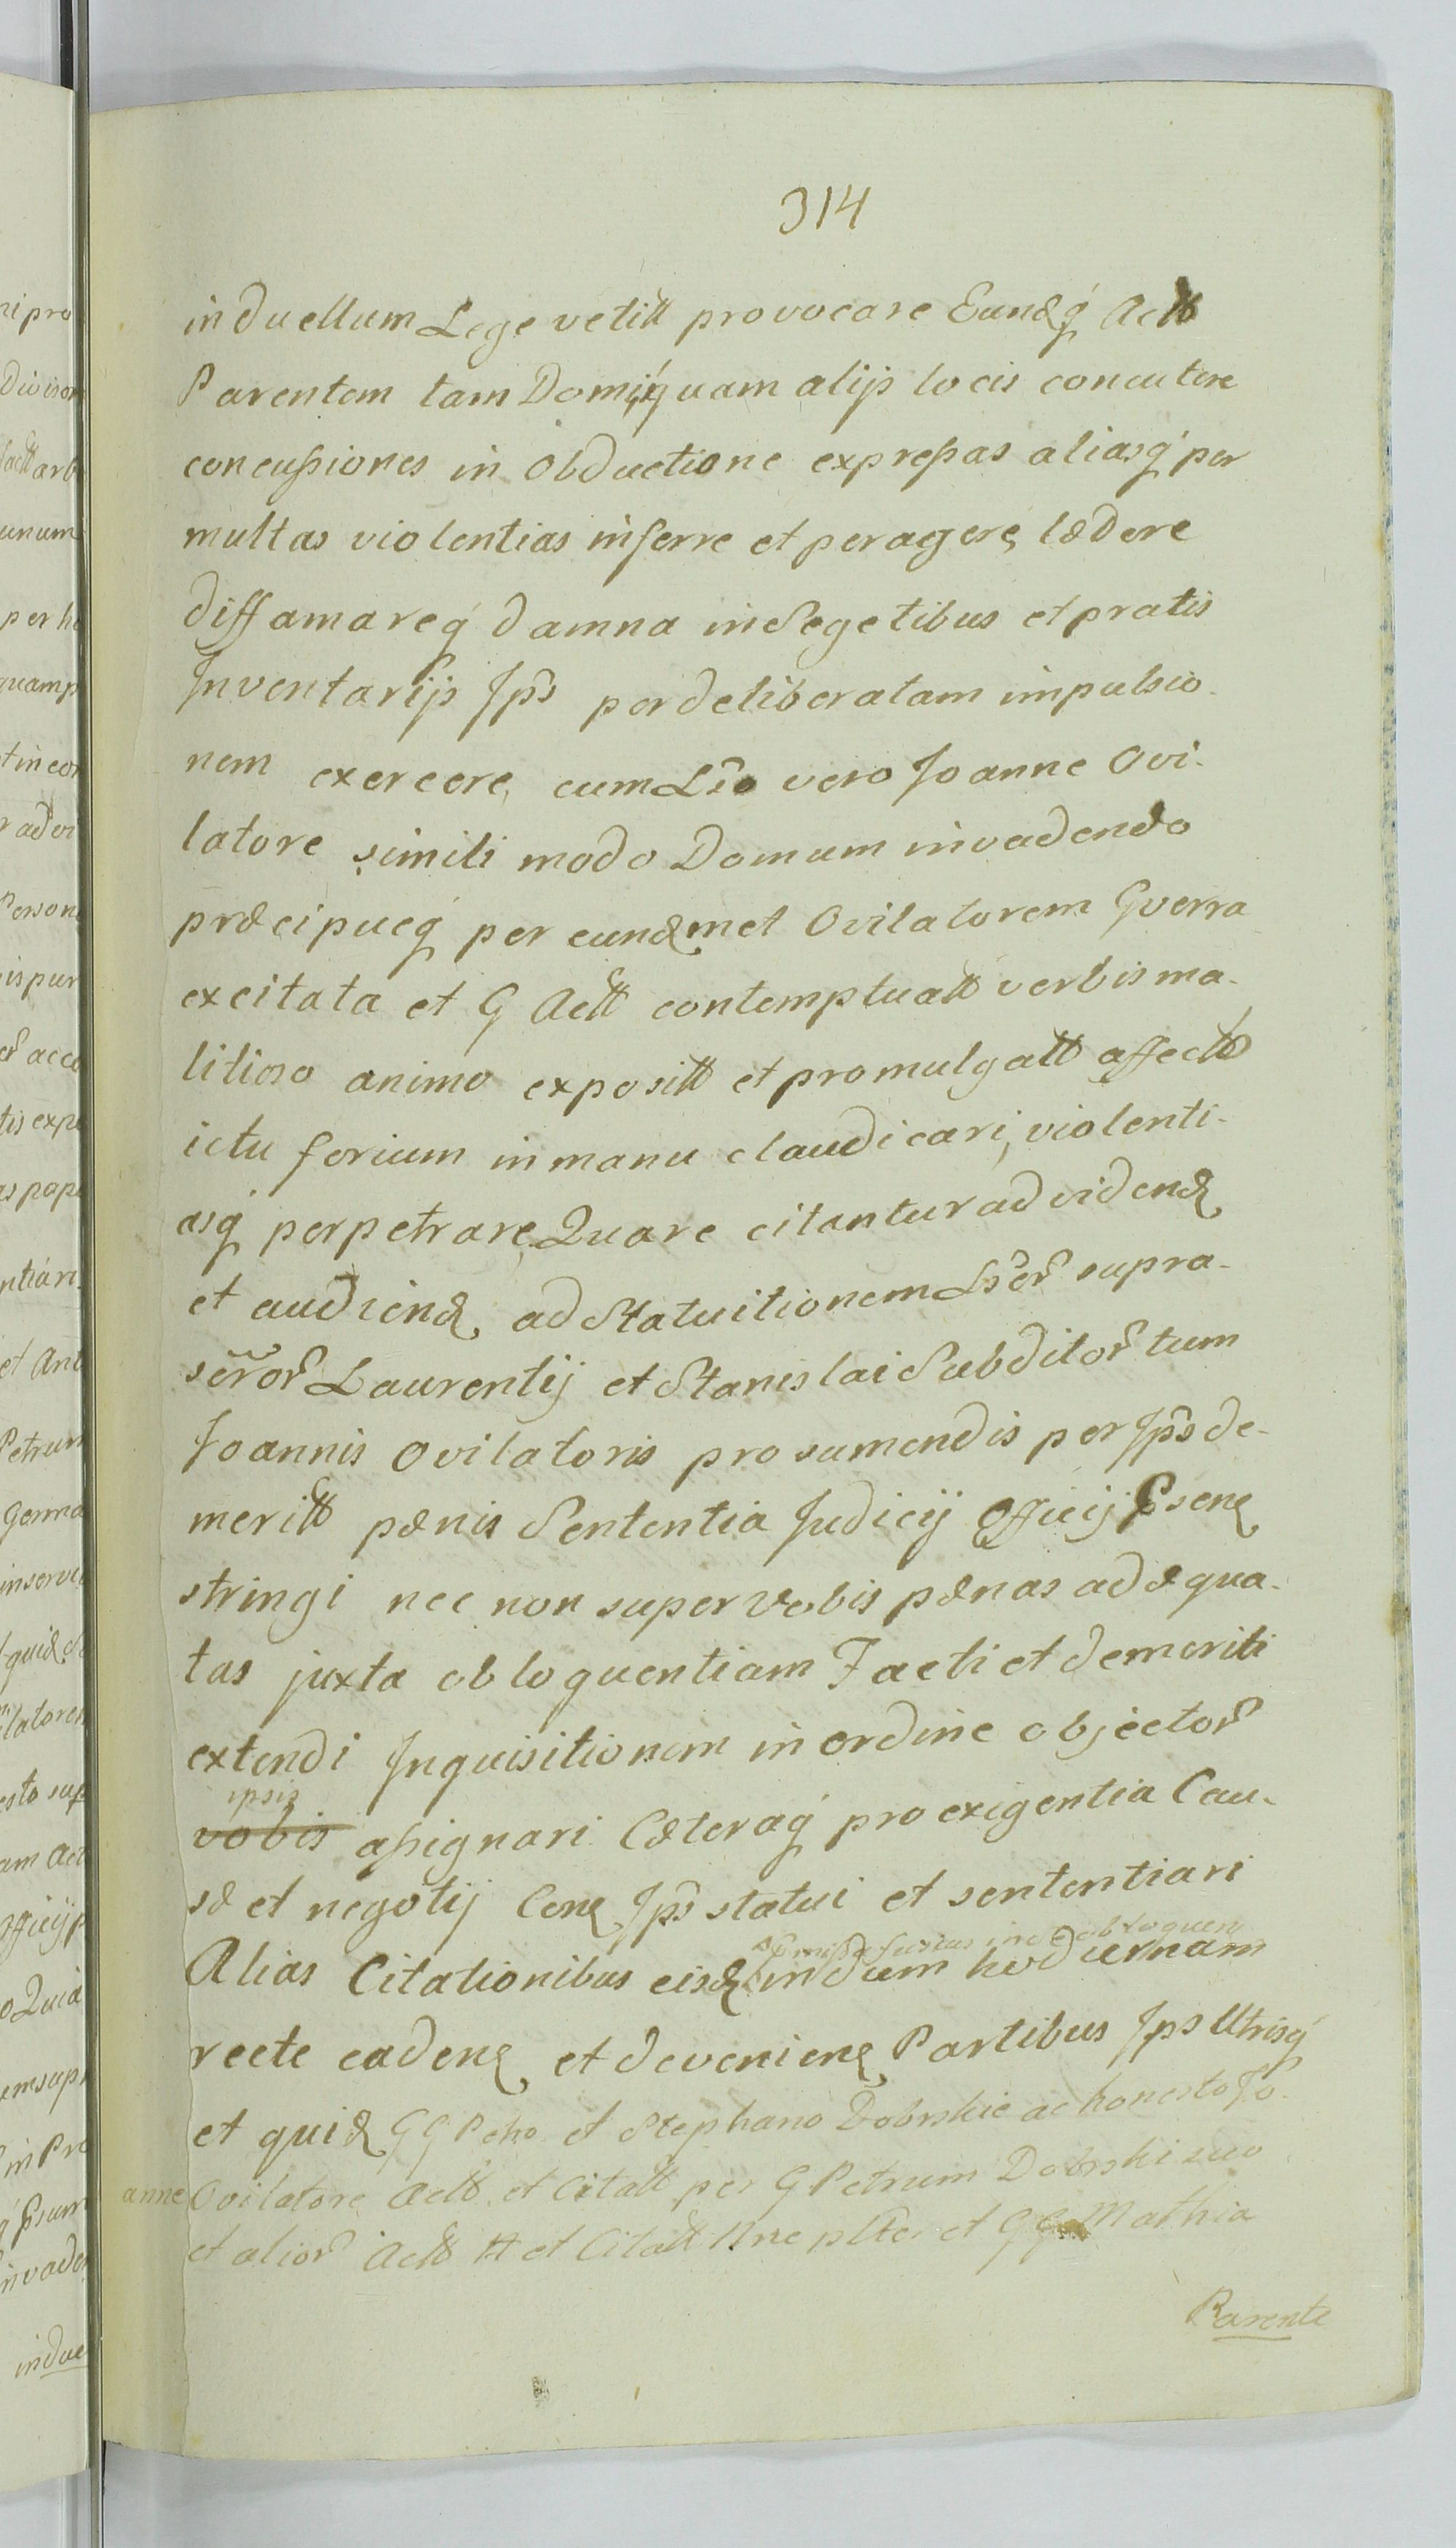 314
in duellum Lege vetitt provocare Eundq́ Actt
Parentem tam Domi, q́uam alijs locis concutere
concußiones in Obductione expreßas aliasq́ per
multas violentias inferre et peragere, lædere
diffamareq́ damna in Segetibus et pratis
Inventarijs Ips̃ per deliberatam impulsio-
nem exercere, cum Lr̃o vero Joanne Ovi-
latore simili modo Domum invadendo
præcipueq́ per eundmet Ovilatorem Gverra
excitata et G Actt contemptuatt verbis ma-
litioso animo expositt et promulgatt affectt
ictu ferium in manu claudicari, violenti-
asq́ perpetrare, Quare citantur ad vidend
et audiend, ad Statuitionem supra-
Laurentij et Stanislai Subditor̃ tum
Joannis Ovilatoris pro sumendis per Ips̃ de-
meritt pænis Sententia Judicij Officij Psene
stringi nec non super Vobis pænas adæqua-
tas juxta obloquentiam Facti et demeriti
extendi Inquisitionem in ordine objector̃
ipsis
vobis aßignari Cæteraq́ pro exigentia Cau-
sæ et negotij Cene Ips̃ statui et sententiari
fusius inde obloquen
Alias Citationibus eisd in diem hodiernam
recte cadene et deveniene Partibus Ips Utrisq́
et quid GG Petro et Stephano Dobrskie ac honesto Jo-
anne Ovilatore Actt et Citatt per G Petrum Dobrski suo
et alior̃ Actt tt et Citatt Nne et GG Mathia
Parente